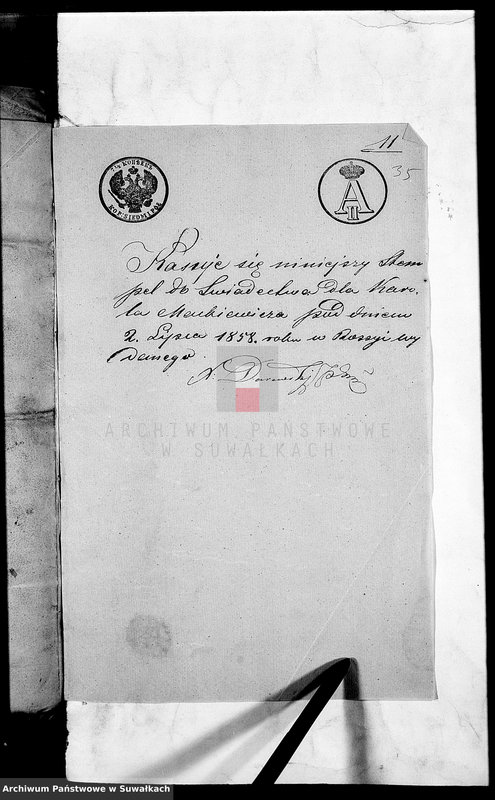 11
35
7½ КОПѢЕКЪ
KOP: SIEDM I PÓŁ
A II
Kassuje się niniejszy Stem
pel do Świadectwa dla Karo,
la Mackiewicza pod dniem
2. Lipca 1858. roku w Rossyi wy
danego
ARCHIWUM PAŃSTWOWE
W SUWAŁKACH
Archiwum Państwowe w Suwałkach